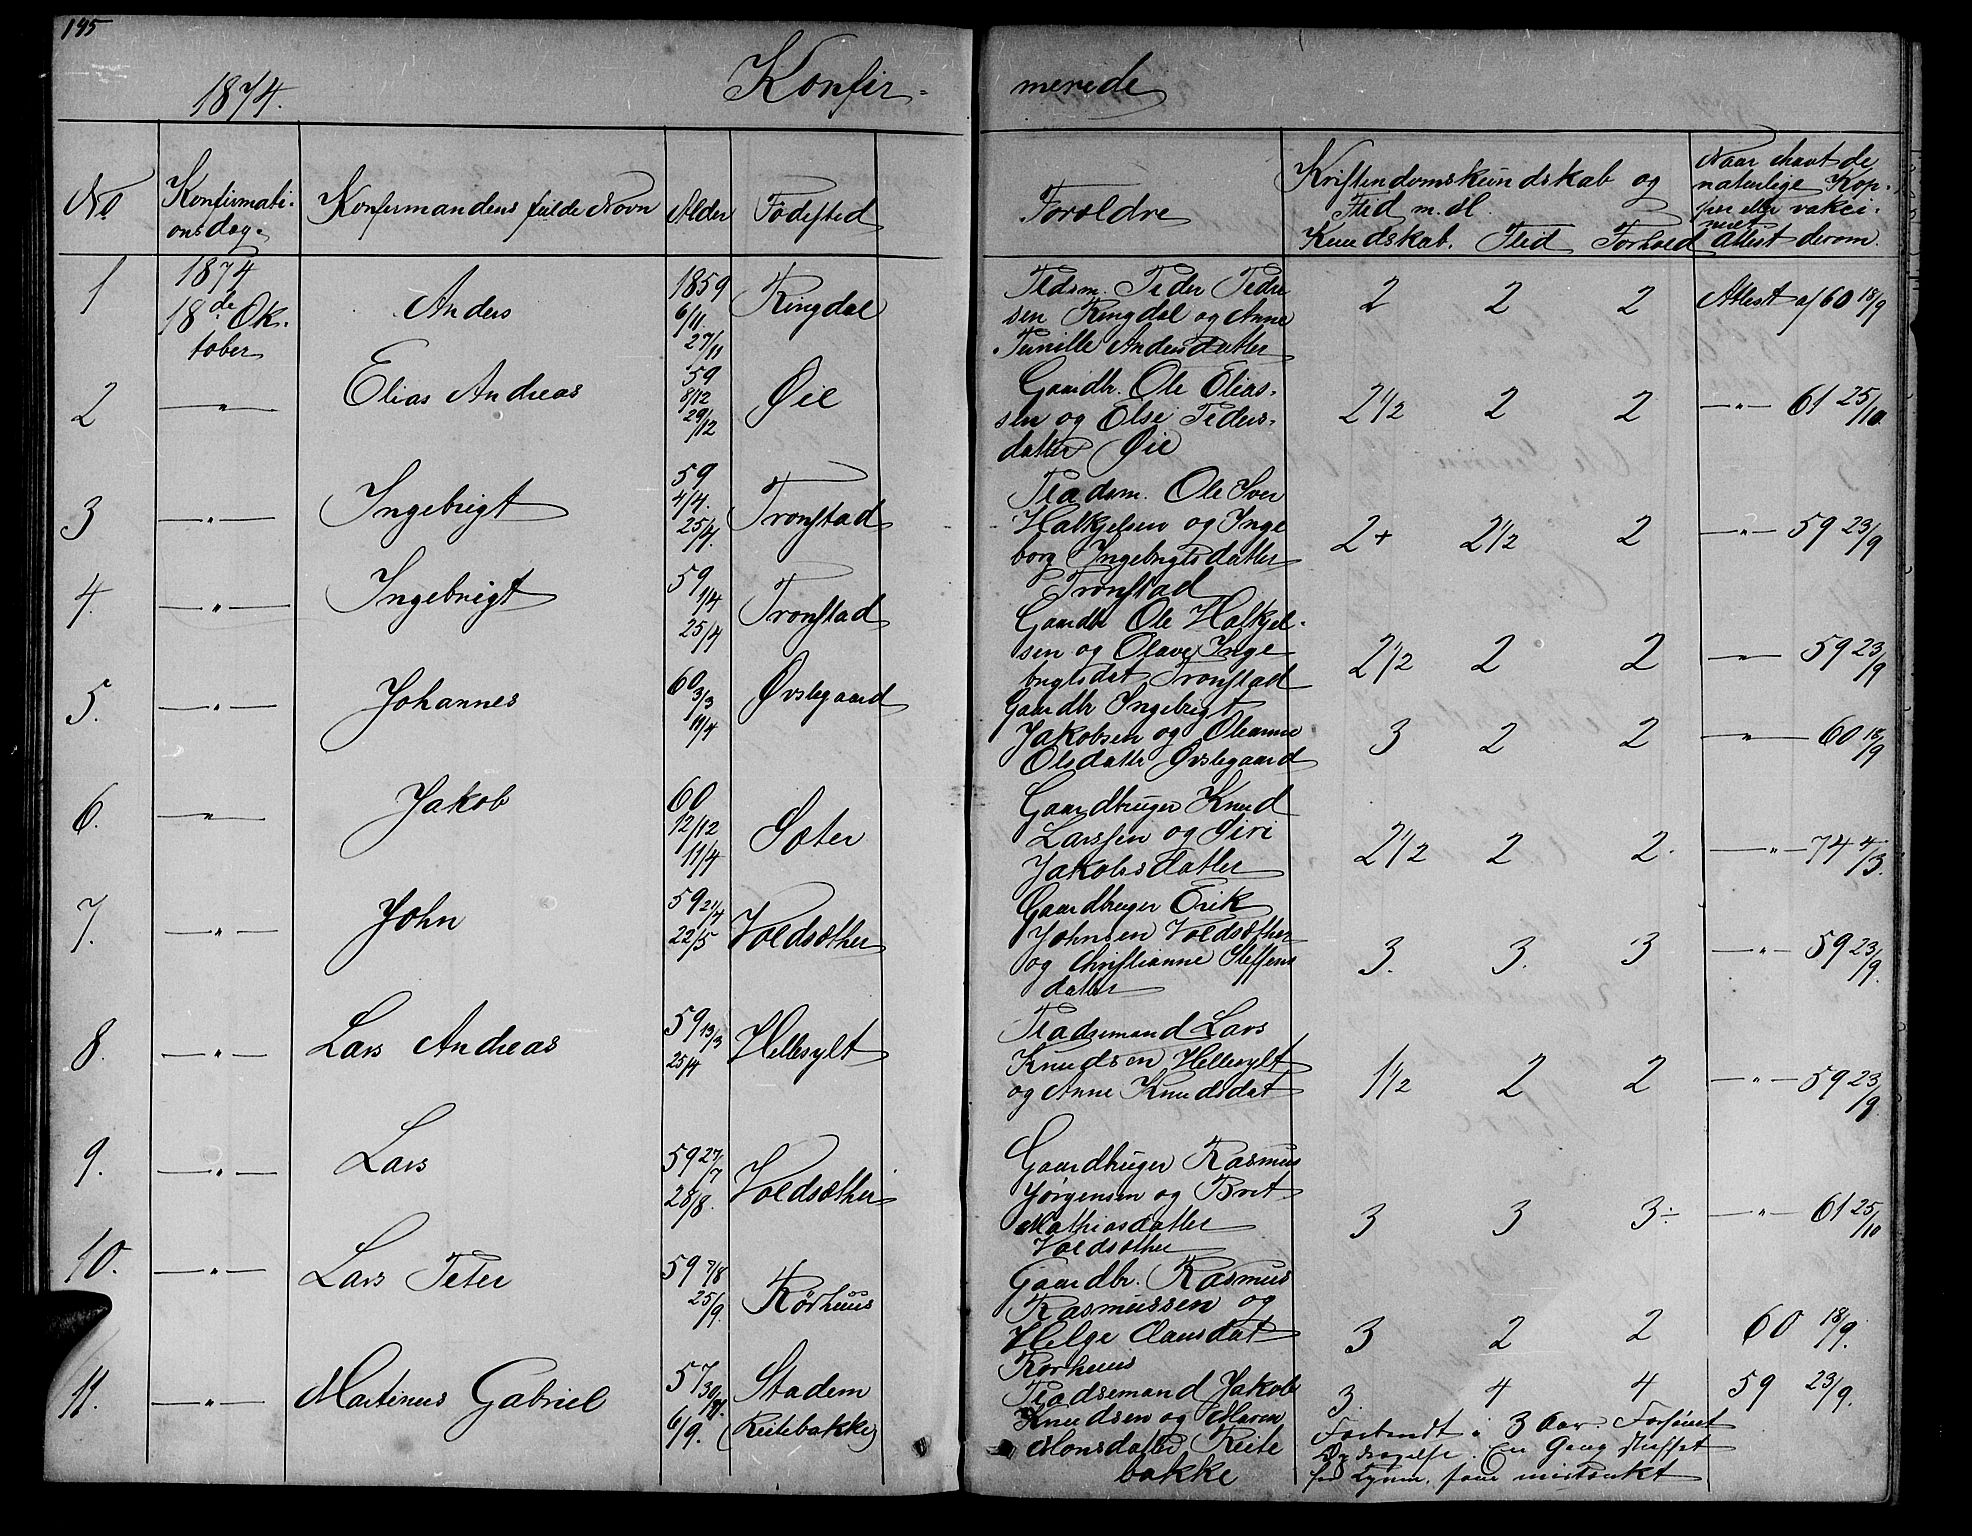 195
1874. Konfir- merede
No
Konfirmati-
onsdag.
Konfirmandens fulde Navn
Alder
Fødested
Forældre
Kristendomskundskab og
Flid m. M.
Kundskab. Flid Forhold
Naar havt de
naturlige Kop-
per eller vakci-
neret
Attest derom.
1
1874
18de Ok-
tober
Anders
1859
6/11.
27/11
Ringdal
Pladsm. Peder Peder
sen Ringdal og Anne
Pernille Andersdatter
2 2 2
Attest af 60 18/9
2
—"—
Elias Andreas
59
8/12
29/12
Øie
Gaardbr. Ole Elias-
sen og Else Peders-
datter Øie
2 1/2 2 2
—"— 61 25/10
3
—"—
Ingebrigt
59
4/4.
25/4.
Tronstad
Pladsm. Ole Iver
Halkjelsen og Inge
borg Ingebrigtsdatter
Tronstad
2+ 2 1/2 2
—"— 59 23/9
4.
—"—
Ingebrigt
59
1/4
25/4
Tronstad
Gaardbr Ole Halkjel-
sen og Olave Inge
brigtsdat Tronstad
2 1/2 2 2
—"— 59 23/9
5.
—"—
Johannes
60
3/3
11/4
Øvstegaard
Gaardbr Ingebrigt
Jakobsen og Oleanna
Olsdatter Øvstegaard
3 2 2
—"— 60 18/9
6.
—"—
Jakob
60
12/12
11/4
Sæter
Gaardbruger Knud
Larssen og Siri
Jakobsdatter
2 1/2 2 2.
—"— 74 4/3.
7.
—"—
John
59 21/4
22/5
Voldsæther
Gaardbruger Erik
Johnsen Voldsæther
og Christianne Steffens
datter
3. 3. 3
—"— 59 23/9.
8.
—"—
Lars Andreas
59 13/3
25/4
Hellesylt
Pladsemand Lars
Knudsen Hellesylt
og Anne Knudsdat
1 1/2 2 2
—"— 59 23/9
9.
—"—
Lars
59 27/7
28/8.
Voldsæther
Gaardbruger Rasmus
Jørgensen og Bret
Mathiasdatter
Voldsæther
3 3 3÷
—"— 61 25/10
10.
—"—
Lars Peter
59 7/8
25/9.
Rørhuus
Gaardbr. Rasmus
Rasmussen og
Helge Clausdat
Rørhuus
3 2 2
60 18/9.
11.
—"—
Martinus Gabriel
57
30/
6/9.
Stadem
(Reitebakke)
Pladsemand Jakob
Knudsen og Maren
Monsdatter Reite
bakke
3. 4 4
59 23/9.
i 3 Aar.
En Gang straffet
for mistænkt